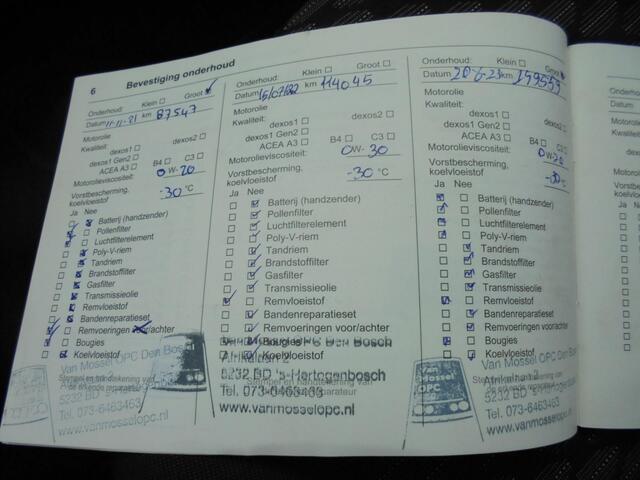 6 Bevestiging onderhoud
Onderhoud: Klein Groot
Datum 11-11-21 km 87547
Motorolie
Kwaliteit:
dexos1 dexos2
dexos1 Gen2
ACEA A3 B4 C3
Motorolieviscositeit: 0W-20
Vorstbescherming,
koelvloeistof -30 °C
Ja Nee
Batterij (handzender)
Pollenfilter
Luchtfilterelement
Poly-V-riem
Tandriem
Brandstoffilter
Gasfilter
Transmissieolie
Remvloeistof
Bandenreparatieset
Remvoeringen voor/achter
Bougies
Koelvloeistof
Van Mossel OPC Den Bosch
Stempel en handtekening van
de erkende reparateur
5232 BD 's-
Tel. 073-6463463
www.vanmosselopc.nl
Onderhoud: Klein Groot
Datum 15/07/22 km 114045
Motorolie
Kwaliteit:
dexos1 dexos2
dexos1 Gen2
ACEA A3 B4 C3
Motorolieviscositeit: 0W-30
Vorstbescherming,
koelvloeistof -30 °C
Ja Nee
Batterij (handzender)
Pollenfilter
Luchtfilterelement
Poly-V-riem
Tandriem
Brandstoffilter
Gasfilter
Transmissieolie
Remvloeistof
Bandenreparatieset
Remvoeringen voor/achter
Bougies
Koelvloeistof
OPC Den Bosch
5232 BD 's-Hertogenbosch
Stempel en handtekening van
Tel. 073-6463463
reparateur
www.vanmosselopc.nl
Onderhoud: Klein Groot
Datum 20-6-23 km 139559
Motorolie
Kwaliteit:
dexos1 dexos2
dexos1 Gen2
ACEA A3 B4 C3
Motorolieviscositeit: 0W-20
Vorstbescherming,
koelvloeistof -30 °C
Ja Nee
Batterij (handzender)
Pollenfilter
Luchtfilterelement
Poly-V-riem
Tandriem
Brandstoffilter
Gasfilter
Transmissieolie
Remvloeistof
Bandenreparatieset
Remvoeringen voor/achter
Bougies
Koelvloeistof
Van Mossel OPC Den Bosch
Van Mossel OPC
5232 BD 's-Hertogenbosch
Tel. 073-6463463
www.vanmosselopc.nl